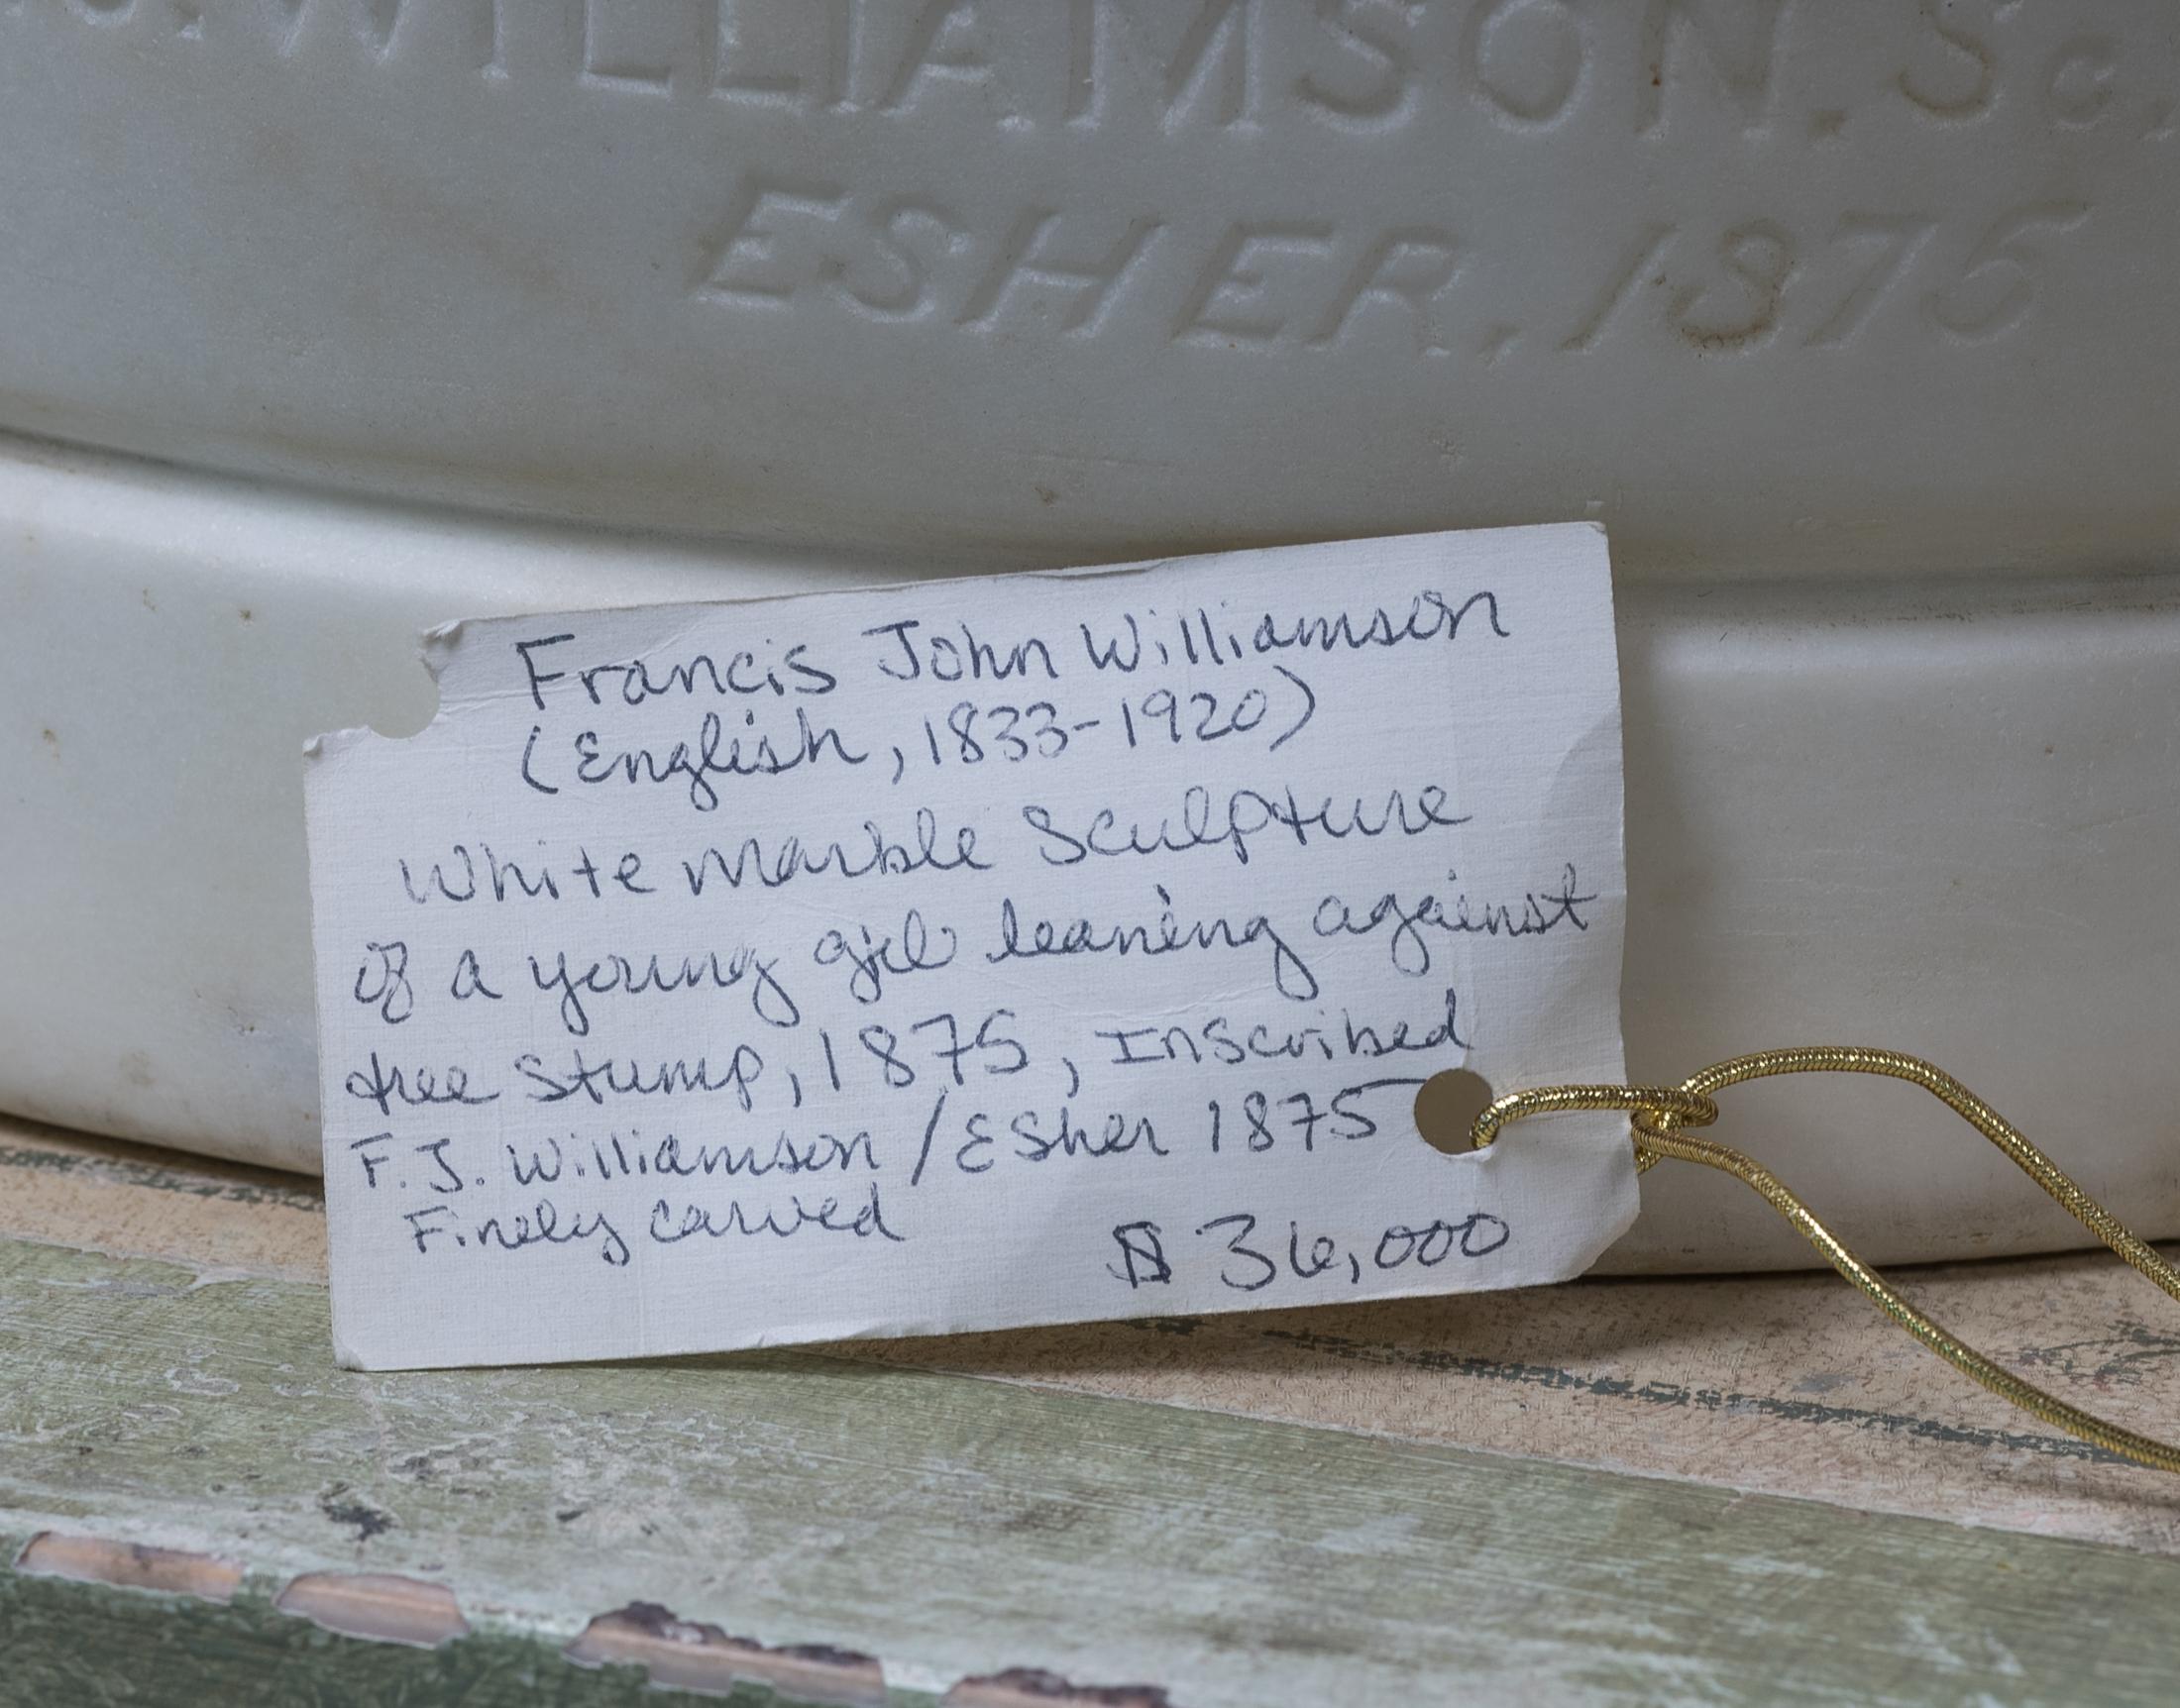 . WILLIAMSON. Sc.
ESHER, 1875
Francis John Williamson
(English, 1833-1920)
White Marble Sculpture
of a young girl leaning against
tree stump, 1875, Inscribed
F. J. Williamson / Esher 1875
Finely carved
$ 36,000